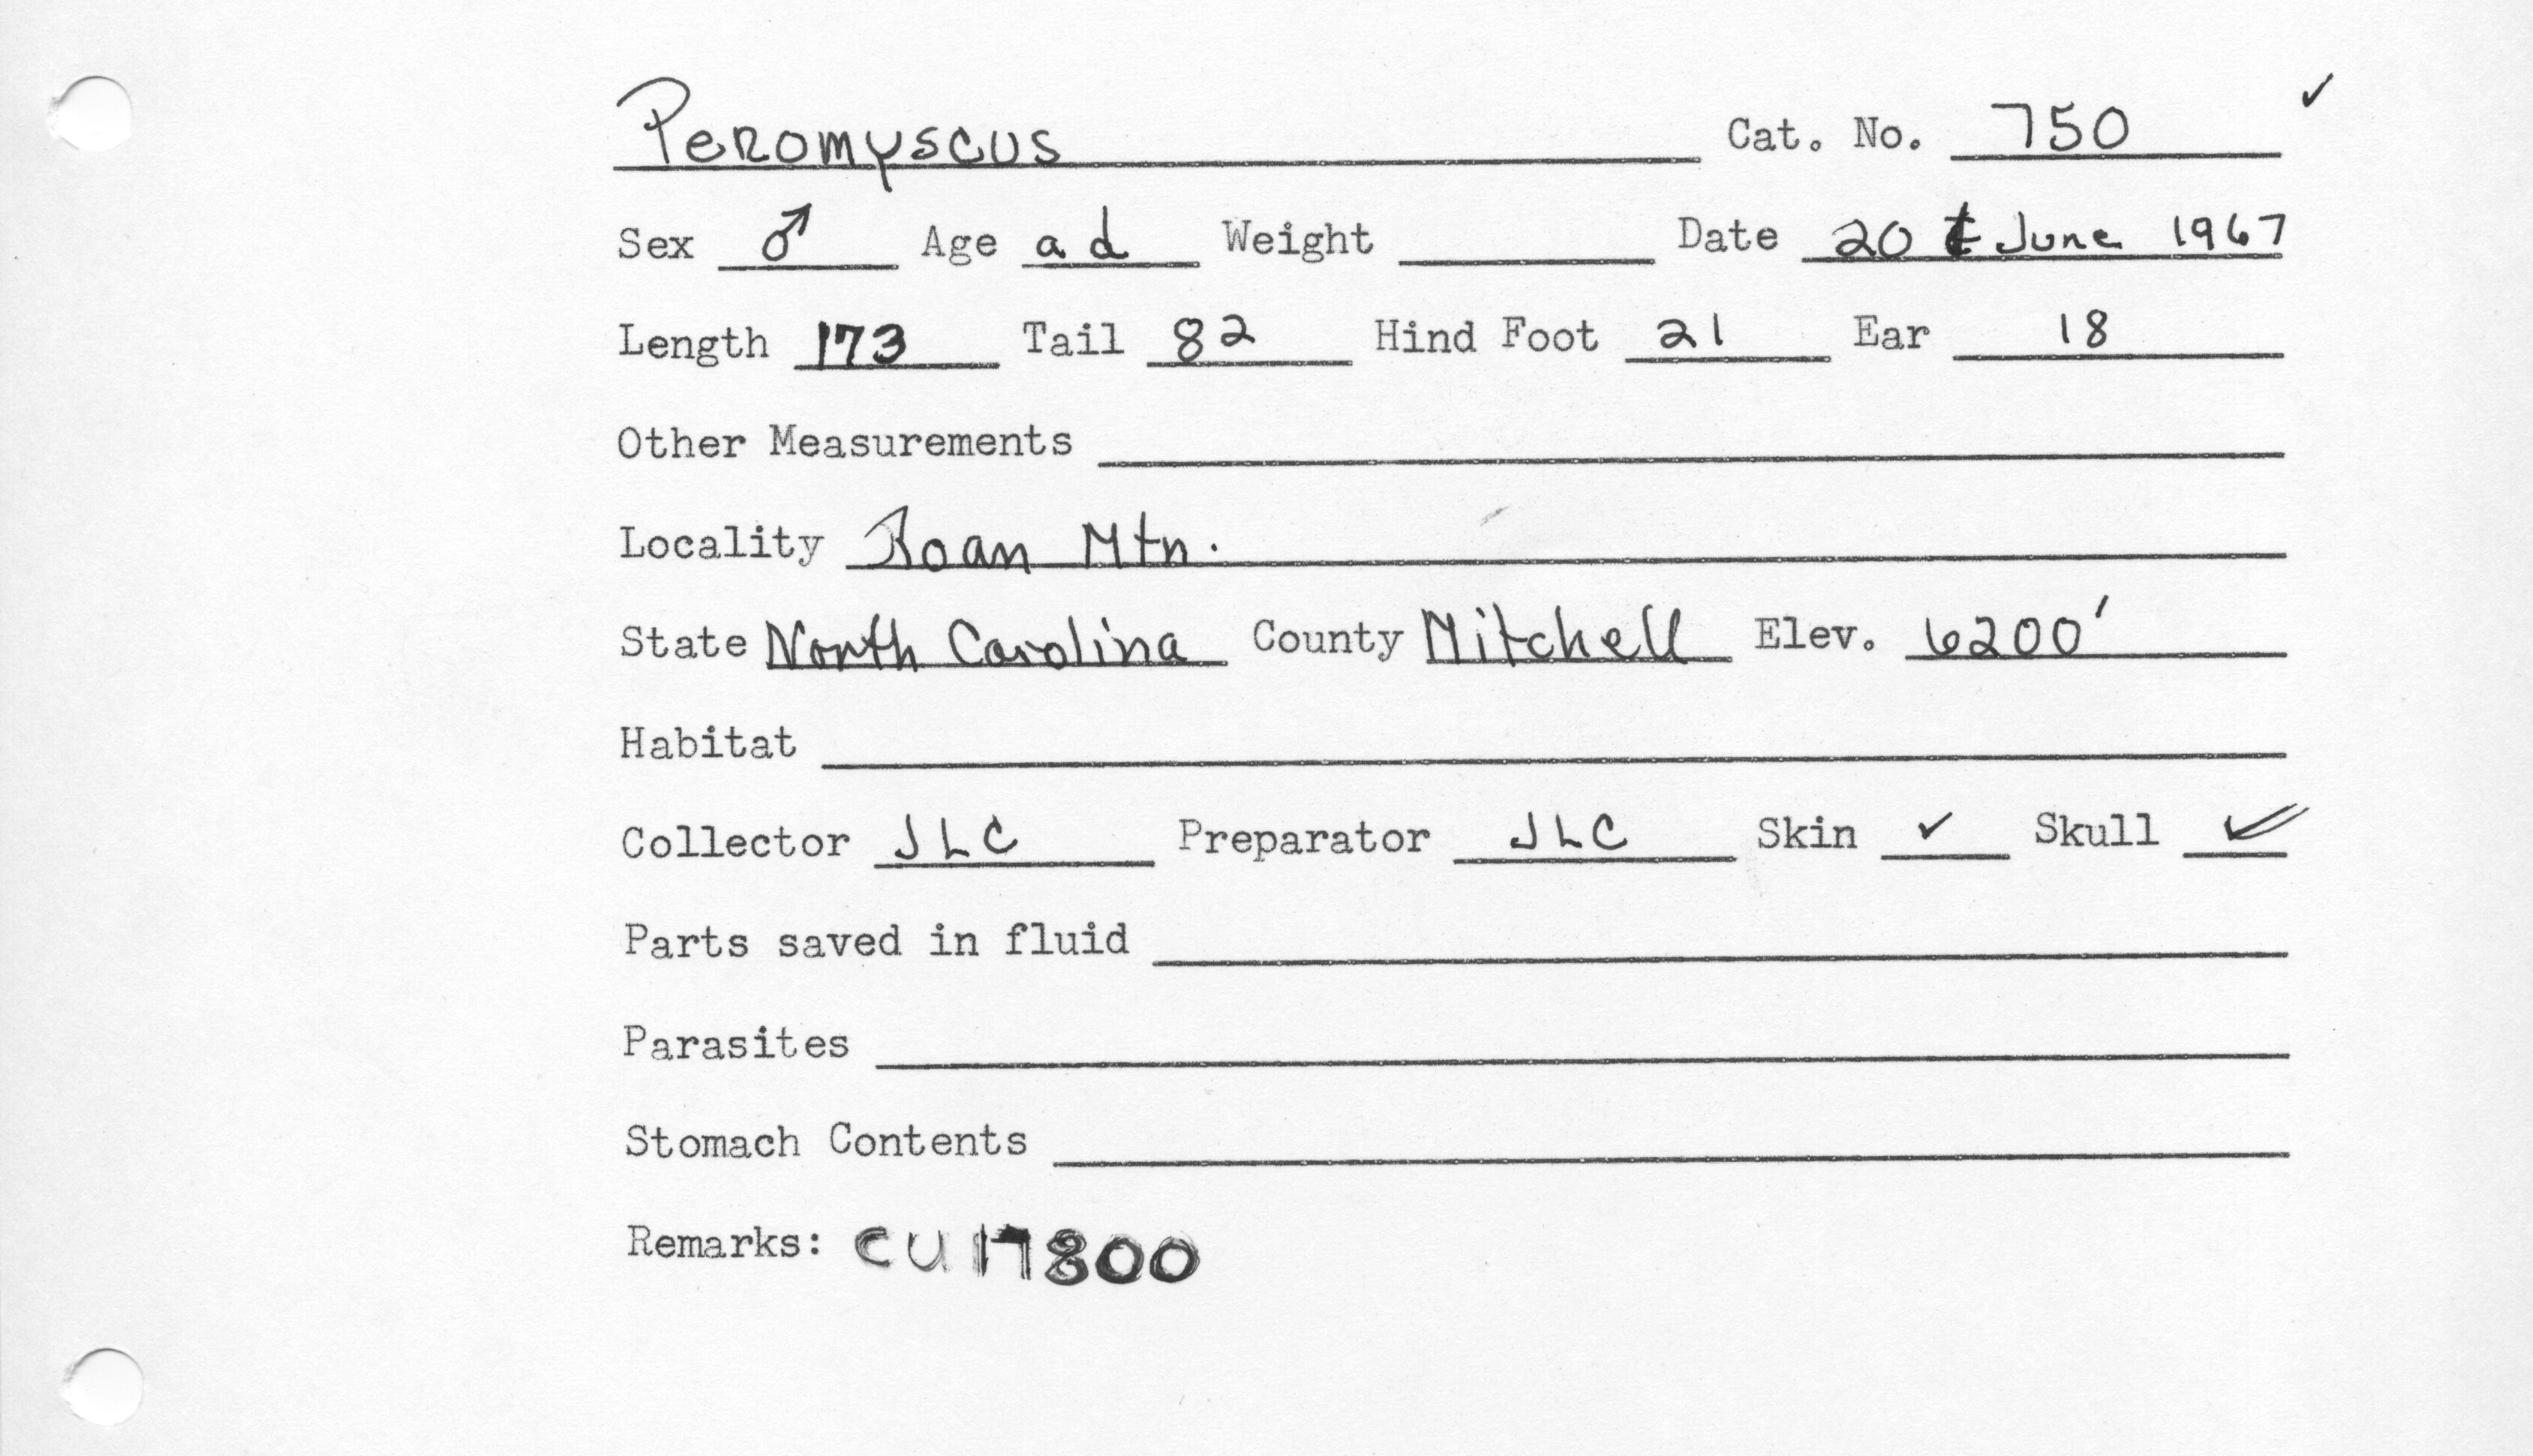 Peromyscus Cat. No. 750 ✓
Sex ♂ Age ad Weight Date 20 June 1967
Length 173 Tail 82 Hind Foot 21 Ear 18
Other Measurements
Locality Roan Mtn.
State North Carolina County Mitchell Elev. 6200'
Habitat
Collector JLC Preparator JLC Skin ✓ Skull ✓
Parts saved in fluid
Parasites
Stomach Contents
Remarks: CU 17800